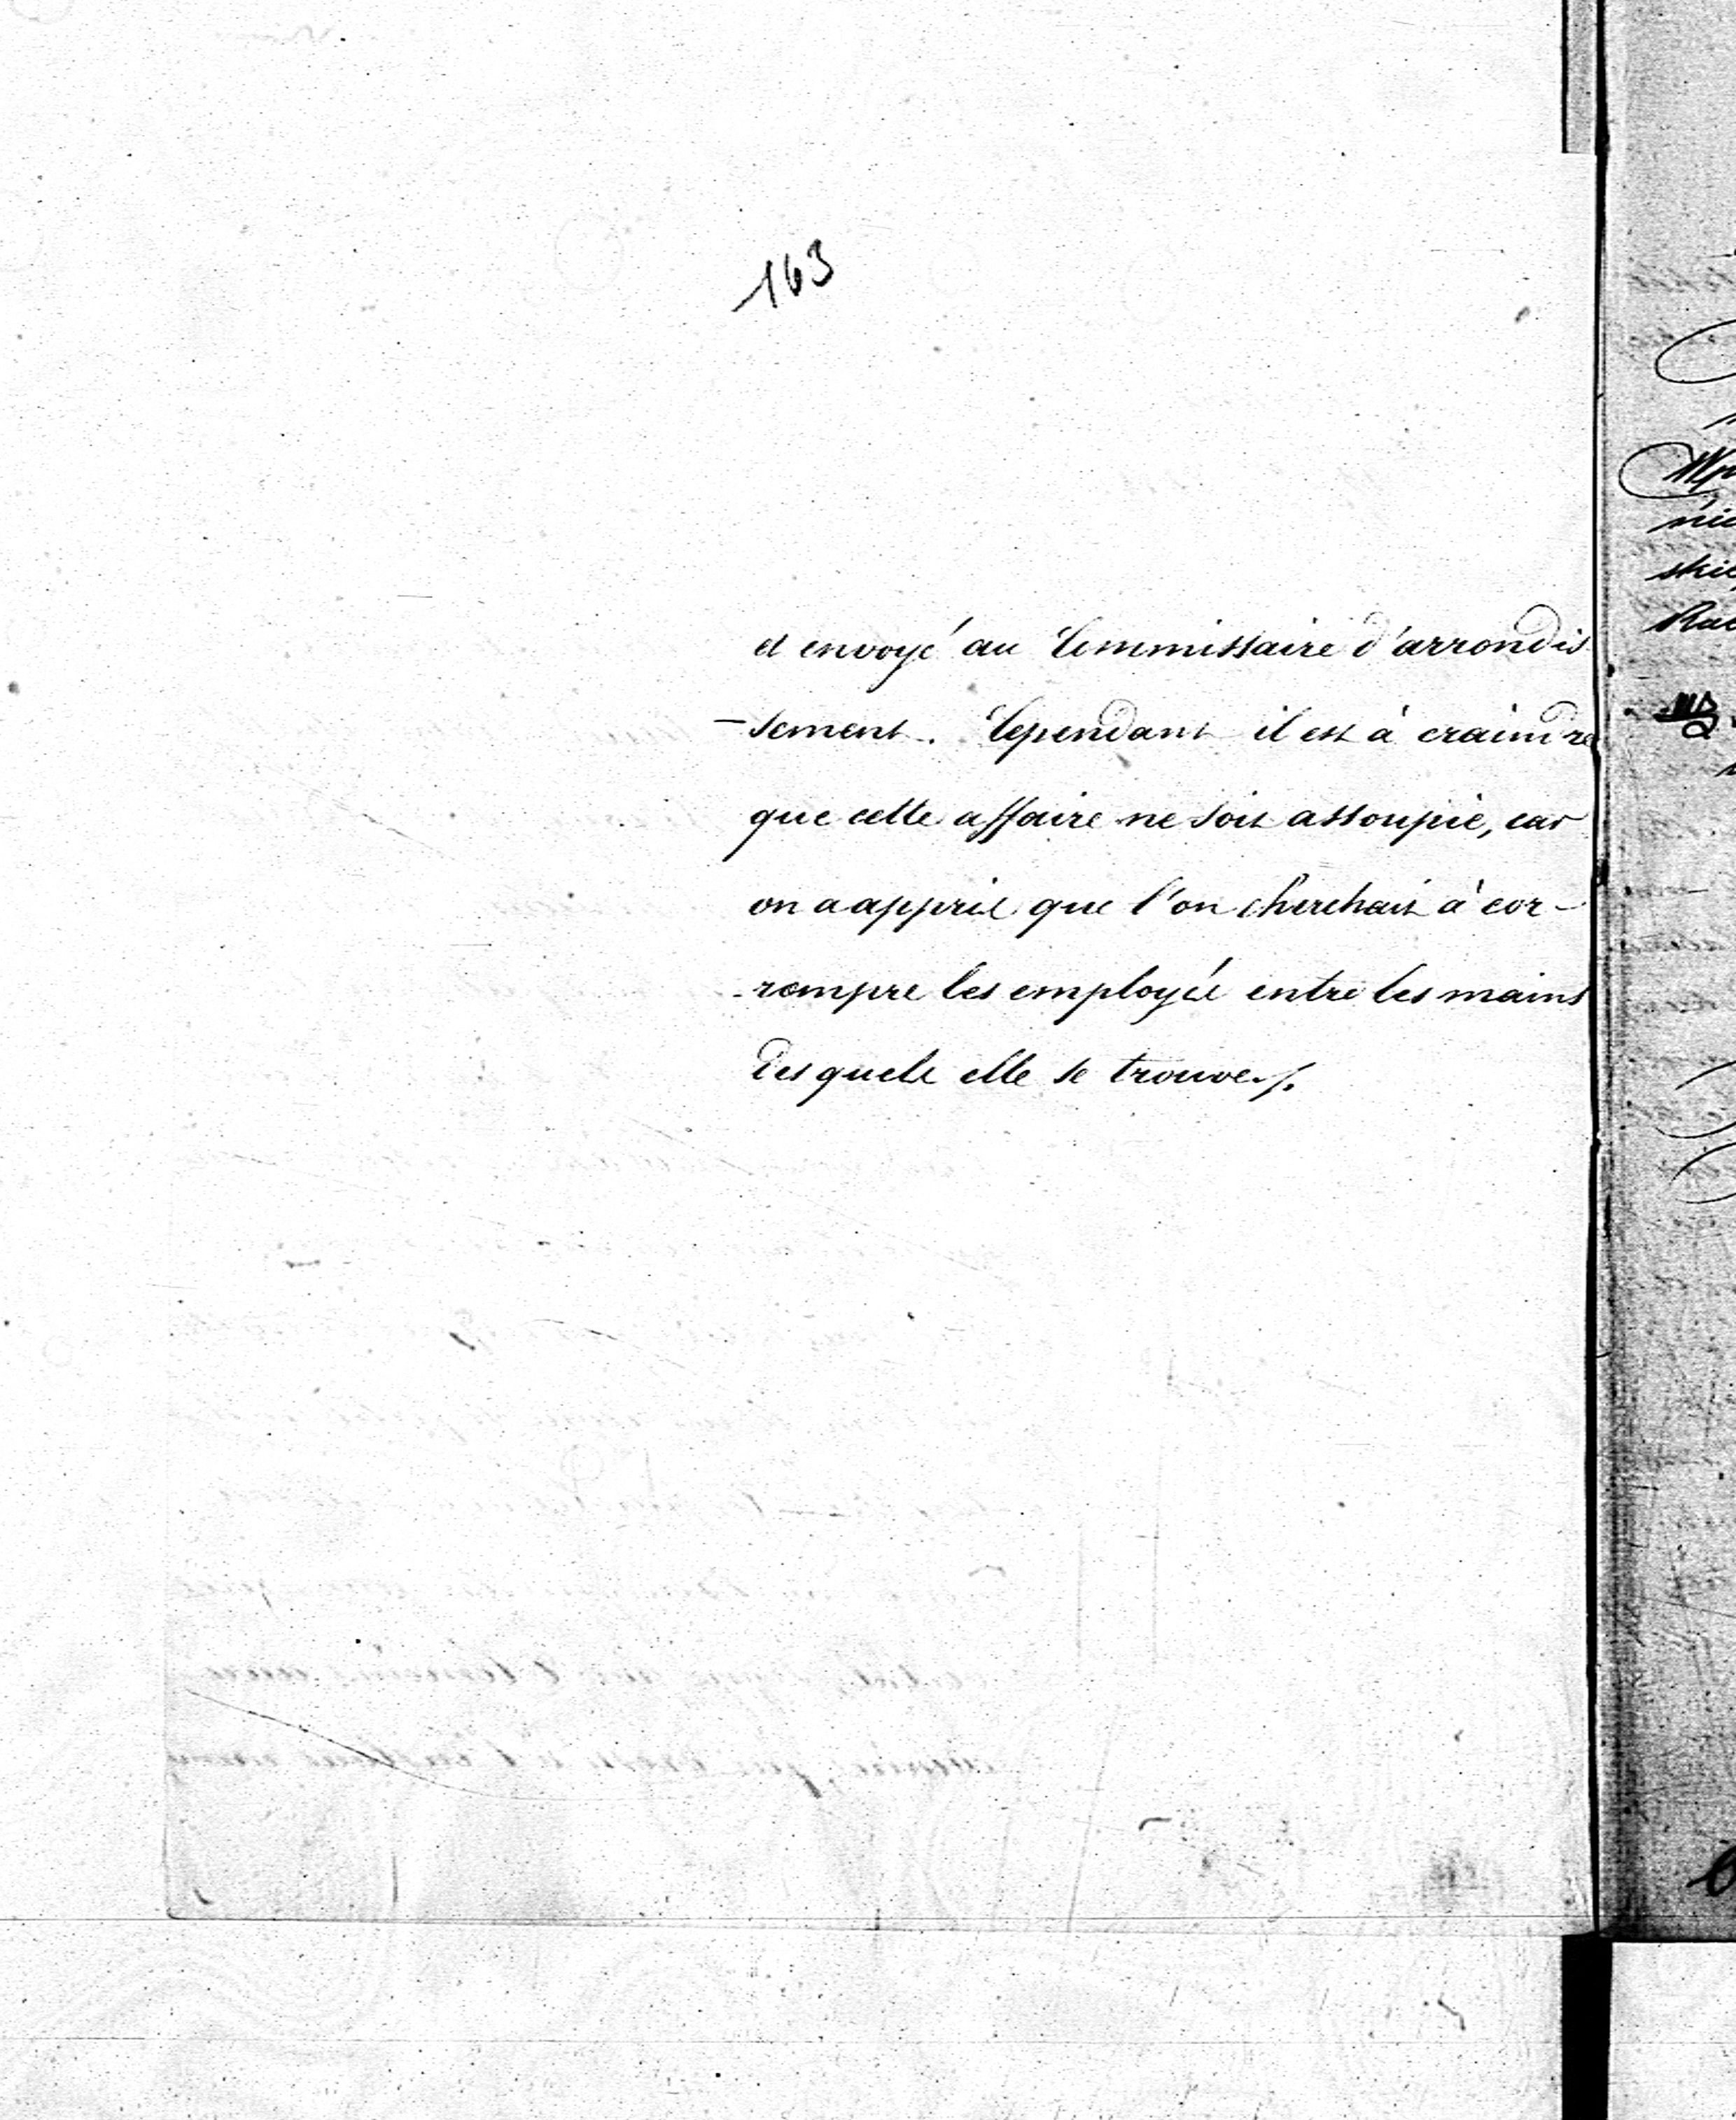 163
et envoyé au Commissaire d'arrondis
- sement. Cependant il est à craindre
que cette affaire ne soit assoupie, car
on a appris que l'on cherchait à cor-
- rompre les employés entre les mains
desquels elle se trouve ./.